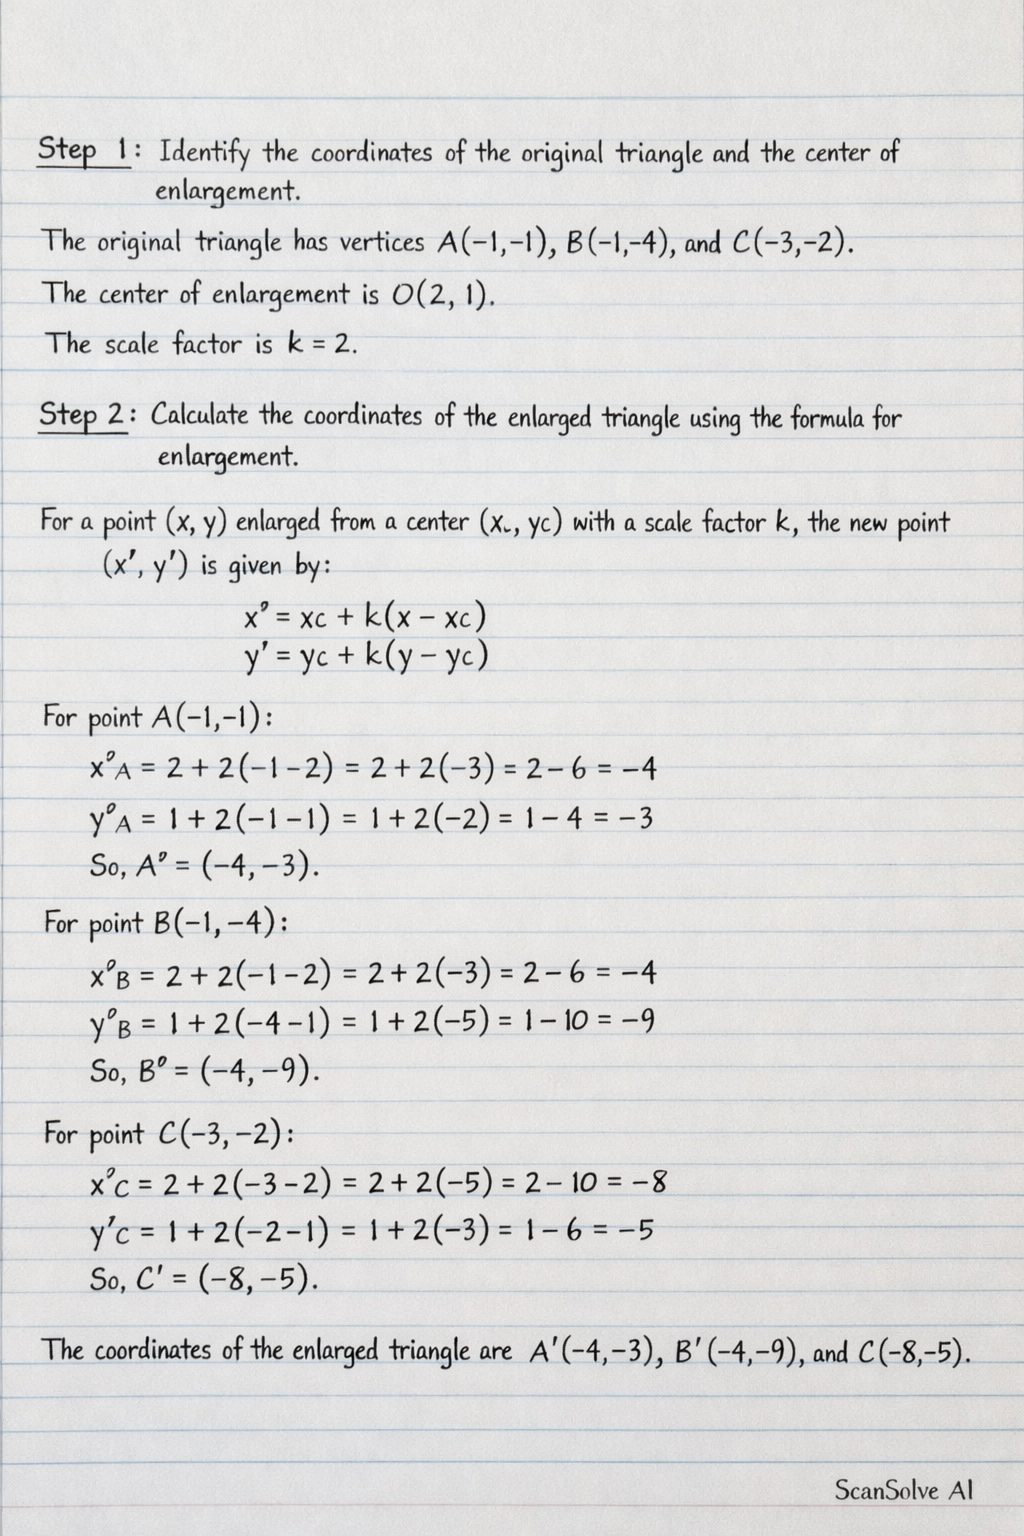 Step 1: Identify the coordinates of the original triangle and the center of
enlargement.
The original triangle has vertices A(−1,−1), B(−1,−4), and C(−3,−2).
The center of enlargement is O(2, 1).
The scale factor is k = 2.
Step 2: Calculate the coordinates of the enlarged triangle using the formula for
enlargement.
For a point (x, y) enlarged from a center (x, yc) with a scale factor k, the new point
(x', y') is given by:
x' = xc + k(x − xc)
y' = yc + k(y − yc)
For point A(−1,−1):
x'A = 2 + 2(−1−2) = 2 + 2(−3) = 2−6 = −4
y'A = 1 + 2(−1−1) = 1 + 2(−2) = 1−4 = −3
So, A' = (−4, −3).
For point B(−1, −4):
x'B = 2 + 2(−1−2) = 2 + 2(−3) = 2−6 = −4
y'B = 1 + 2(−4−1) = 1 + 2(−5) = 1−10 = −9
So, B' = (−4, −9).
For point C(−3, −2):
x'C = 2 + 2(−3−2) = 2 + 2(−5) = 2−10 = −8
y'C = 1 + 2(−2−1) = 1 + 2(−3) = 1−6 = −5
So, C' = (−8, −5).
The coordinates of the enlarged triangle are A'(−4,−3), B'(−4,−9), and C(−8,−5).
ScanSolve AI